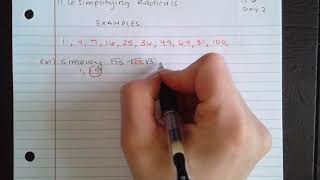 11.6 Simplifying Radicals
Day 2
EXAMPLES
1, 4, 9, 16, 25, 36, 49, 64, 81, 100,
Ex1) Simplify √75 = √25 √3
1, 25